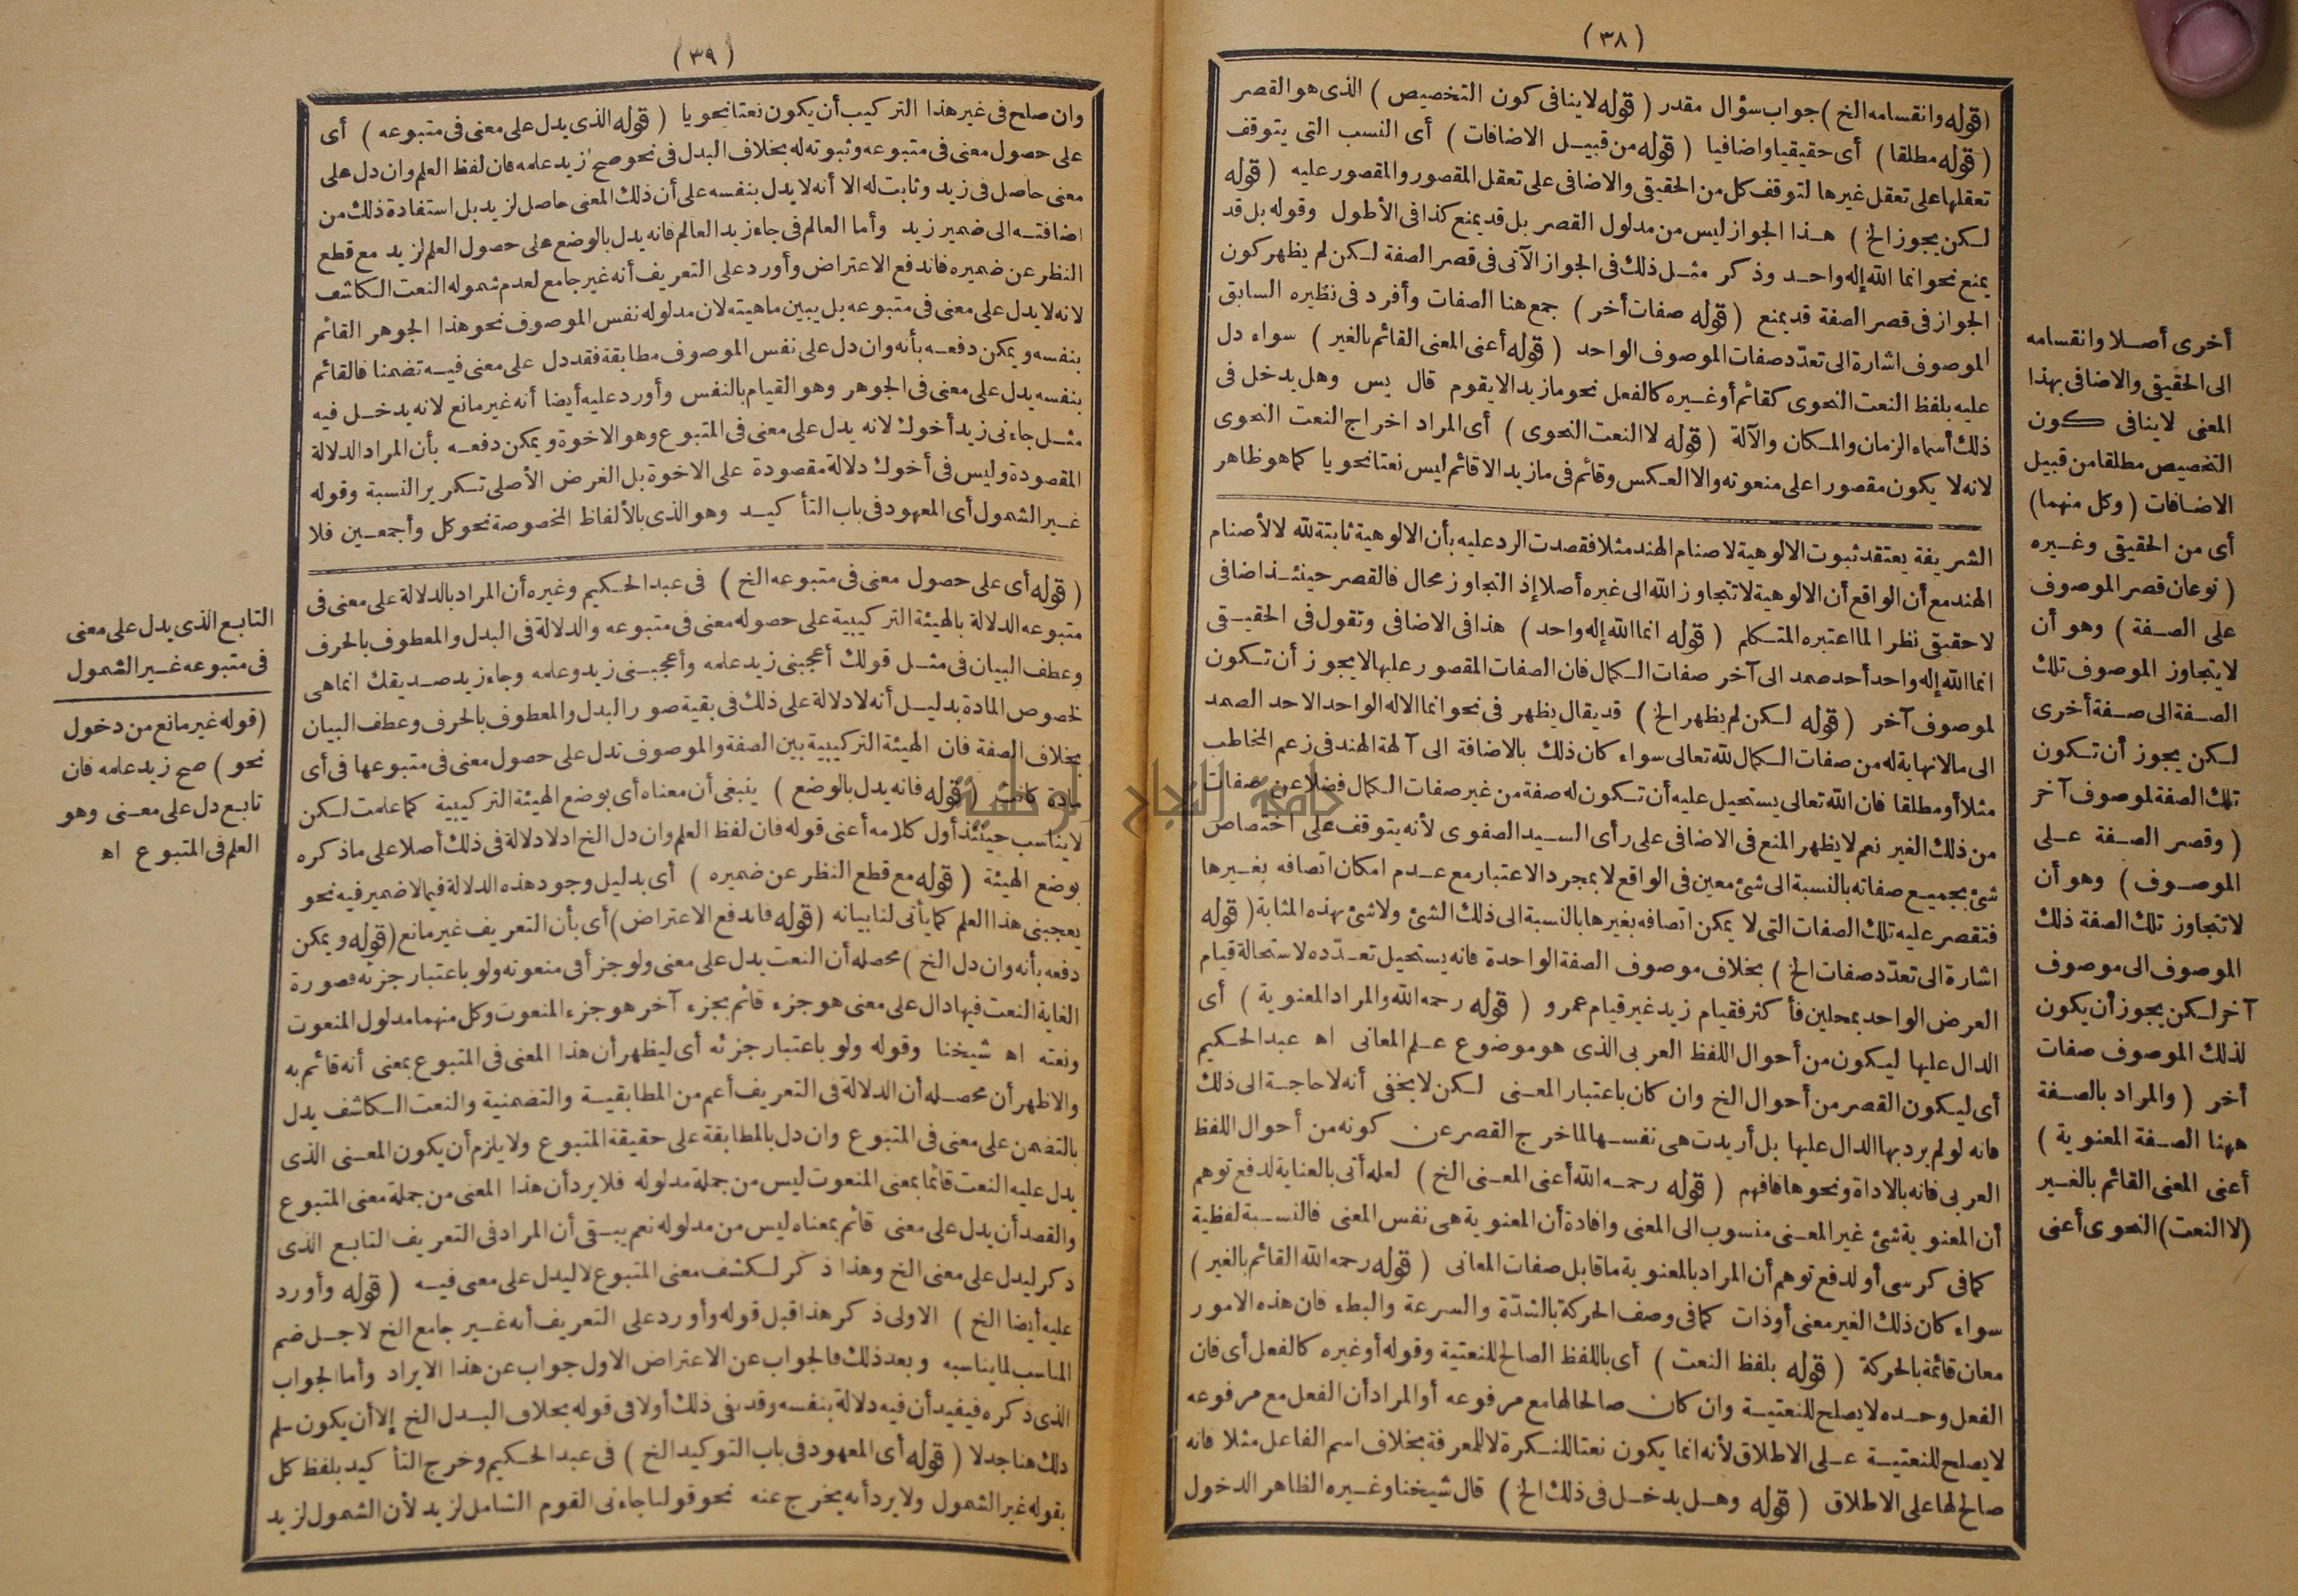 (٣٨)
(قوله وانقسامه الخ) جواب سؤال مقدر (قوله لا ينافى كون التخصيص) الذى هو القصر
(قوله مطلقا) أى حقيقيا واضافيا (قوله من قبيل الاضافات) أى النسب التى يتوقف
تعقلها على تعقل غيرها لتوقف كل من الحقيقى والاضافى على تعقل المقصور والمقصور عليه (قوله
لكن يجوز الخ) هذا الجواز ليس من مدلول القصر بل قد يمنع كذا فى الأطول وقوله بل قد
يمنع نحو انما الله إله واحد وذكر مثل ذلك فى الجواز الآتى فى قصر الصفة لكن لم يظهر كون
الجواز فى قصر الصفة قد يمنع (قوله صفات أخر) جمع هنا الصفات وأفرد فى نظيره السابق
الموصوف اشارة الى تعدّد صفات الموصوف الواحد (قوله أعنى المعنى القائم بالغير) سواء دل
عليه بلفظ النعت النحوى كقائم أو غيره كالفعل نحو ما زيد الا يقوم قال يس وهل يدخل فى
ذلك أسماء الزمان والمكان والآلة (قوله لا النعت النحوى) أى المراد اخراج النعت النحوى
لانه لا يكون مقصورا على منعوته والا العكس وقائم فى ما زيد الا قائم ليس نعتا نحويا كما هو ظاهر
الشريفة يعتقد ثبوت الالوهية لاصنام الهند مثلا فقصدت الرد عليه بأن الالوهية ثابتة لله لا لأصنام
الهند مع أن الواقع أن الالوهية لا تتجاوز الله الى غيره أصلا إذ التجاوز محال فالقصر حينئذ اضافى
لا حقيقى نظرا لما اعتبره المتكلم (قوله انما الله إله واحد) هذا فى الاضافى وتقول فى الحقيقى
انما الله إله واحد أحد صمد الى آخر صفات الكمال فان الصفات المقصور عليها لا يجوز أن تكون
لموصوف آخر (قوله لكن لم يظهر الخ) قد يقال يظهر فى نحو انما الاله الواحد الاحد الصمد
الى ما لا نهاية له من صفات الكمال لله تعالى سواء كان ذلك بالاضافة الى آلهة الهند فى زعم المخاطب
مثلا أو مطلقا فان الله تعالى يستحيل عليه أن تكون له صفة من غير صفات الكمال فضلا عن صفات
من ذلك الغير نعم لا يظهر المنع فى الاضافى على رأى السيد الصفوى لأنه يتوقف على اختصاص
شئ بجميع صفاته بالنسبة الى شئ معين فى الواقع لا بمجرد الاعتبار مع عدم امكان اتصافه بغيرها
فتقصر عليه تلك الصفات التى لا يمكن اتصافه بغيرها بالنسبة الى ذلك الشئ ولا شئ بهذه المثابة (قوله
اشارة الى تعدّد صفات الخ) بخلاف موصوف الصفة الواحدة فانه يستحيل تعدّده لاستحالة قيام
العرض الواحد بمحلين فأكثر فقيام زيد غير قيام عمرو (قوله رحمه الله والمراد المعنوية) أى
الدال عليها ليكون من أحوال اللفظ العربى الذى هو موضوع علم المعانى اه عبد الحكيم
أى ليكون القصر من أحوال الخ وان كان باعتبار المعنى لكن لا يخفى أنه لا حاجة الى ذلك
فانه لو لم يرد بها الدال عليها بل أريدت هى نفسها لما خرج القصر عن كونه من أحوال اللفظ
العربى فانه بالاداة ونحوها فافهم (قوله رحمه الله أعنى المعنى الخ) لعله أتى بالعناية لدفع توهم
أن المعنوية شئ غير المعنى منسوب الى المعنى وافادة أن المعنوية هى نفس المعنى فالنسبة لفظية
كما فى كرسى أو لدفع توهم أن المراد بالمعنوية ما قابل صفات المعانى (قوله رحمه الله القائم بالغير)
سواء كان ذلك الغير معنى أو ذات كما فى وصف الحركة بالشدّة والسرعة والبطء فان هذه الامور
معان قائمة بالحركة (قوله بلفظ النعت) أى باللفظ الصالح للنعتية وقوله أو غيره كالفعل أى فان
الفعل وحده لا يصلح للنعتية وان كان صالحا لها مع مرفوعه أو المراد أن الفعل مع مرفوعه
لا يصلح للنعتية على الاطلاق لأنه انما يكون نعتا للنكرة لا للمعرفة بخلاف اسم الفاعل مثلا فانه
صالح لها على الاطلاق (قوله وهل يدخل فى ذلك الخ) قال شيخنا وغيره الظاهر الدخول
أخرى أصلا وانقسامه
الى الحقيقى والاضافى بهذا
المعنى لا ينافى كون
التخصيص مطلقا من قبيل
الاضافات (وكل منهما)
أى من الحقيقى وغيره
(نوعان قصر الموصوف
على الصفة) وهو أن
لا يتجاوز الموصوف تلك
الصفة الى صفة أخرى
لكن يجوز أن تكون
تلك الصفة لموصوف آخر
(وقصر الصفة على
الموصوف) وهو أن
لا تتجاوز تلك الصفة ذلك
الموصوف الى موصوف
آخر لكن يجوز أن يكون
لذلك الموصوف صفات
أخر (والمراد بالصفة
ههنا الصفة المعنوية)
أعنى المعنى القائم بالغير
(لا النعت) النحوى أعنى
(٣٩)
وان صلح فى غير هذا التركيب أن يكون نعتا نحويا (قوله الذى يدل على معنى فى متبوعه) أى
على حصول معنى فى متبوعه وثبوته له بخلاف البدل فى نحو صح زيد علمه فان لفظ العلم وان دل على
معنى حاصل فى زيد وثابت له الا أنه لا يدل بنفسه على أن ذلك المعنى حاصل لزيد بل استفادة ذلك من
اضافته الى ضمير زيد وأما العالم فى جاء زيد العالم فانه يدل بالوضع على حصول العلم لزيد مع قطع
النظر عن ضميره فاندفع الاعتراض وأورد على التعريف أنه غير جامع لعدم شموله النعت الكاشف
لانه لا يدل على معنى فى متبوعه بل يبين ماهيته لان مدلوله نفس الموصوف نحو هذا الجوهر القائم
بنفسه ويمكن دفعه بأنه وان دل على نفس الموصوف مطابقة فقد دل على معنى فيه تضمنا فالقائم
بنفسه يدل على معنى فى الجوهر وهو القيام بالنفس وأورد عليه أيضا أنه غير مانع لانه يدخل فيه
مثل جاءنى زيد أخوك لانه يدل على معنى فى المتبوع وهو الاخوة ويمكن دفعه بأن المراد الدلالة
المقصودة وليس فى أخوك دلالة مقصودة على الاخوة بل الغرض الأصلى تكرير النسبة وقوله
غير الشمول أى المعهود فى باب التأكيد وهو الذى بالألفاظ المخصوصة نحو كل وأجمعين فلا
(قوله أى على حصول معنى فى متبوعه الخ) فى عبد الحكيم وغيره أن المراد بالدلالة على معنى فى
متبوعه الدلالة بالهيئة التركيبية على حصوله معنى فى متبوعه والدلالة فى البدل والمعطوف بالحرف
وعطف البيان فى مثل قولك أعجبنى زيد علمه وأعجبنى زيد وعلمه وجاء زيد صديقك انما هى
لخصوص المادة بدليل أنه لا دلالة على ذلك فى بقية صور البدل والمعطوف بالحرف وعطف البيان
بخلاف الصفة فان الهيئة التركيبية بين الصفة والموصوف تدل على حصول معنى فى متبوعها فى أى
مادة كانت (قوله فانه يدل بالوضع) ينبغى أن معناه أى بوضع الهيئة التركيبية كما علمت لكن
لا يناسب حينئذ أول كلامه أعنى قوله فان لفظ العلم وان دل الخ اد لا دلالة فى ذلك أصلا على ما ذكره
بوضع الهيئة (قوله مع قطع النظر عن ضميره) أى بدليل وجود هذه الدلالة فيما لا ضمير فيه نحو
يعجبنى هذا العلم كما يأتى لنا بيانه (قوله فاندفع الاعتراض) أى بأن التعريف غير مانع (قوله ويمكن
دفعه بأنه وان دل الخ) محصله أن النعت يدل على معنى ولو جزأ فى منعوته ولو باعتبار جزئه فصورة
الغاية النعت فيها دال على معنى هو جزء قائم بجزء آخر هو جزء المنعوت وكل منهما مدلول المنعوت
ونعته اه شيخنا وقوله ولو باعتبار جزئه أى ليظهر أن هذا المعنى فى المتبوع بمعنى أنه قائم به
والاظهر أن محصله أن الدلالة فى التعريف أعم من المطابقية والتضمنية والنعت الكاشف يدل
بالتضمن على معنى فى المتبوع وان دل بالمطابقة على حقيقة المتبوع ولا يلزم أن يكون المعنى الذى
يدل عليه النعت قائما بمعنى المنعوت ليس من جملة مدلوله فلا يرد أن هذا المعنى من جملة معنى المتبوع
والقصد أن يدل على معنى قائم بمعناه ليس من مدلوله نعم يبقى أن المراد فى التعريف التابع الذى
ذكر ليدل على معنى الخ وهذا ذكر لكشف معنى المتبوع لا ليدل على معنى فيه (قوله وأورد
عليه أيضا الخ) الاولى ذكر هذا قبل قوله وأورد على التعريف أنه غير جامع الخ لاجل ضم
المناسب لما يناسبه وبعد ذلك فالجواب عن الاعتراض الاول جواب عن هذا الايراد وأما الجواب
الذى ذكره فيفيد أن فيه دلالة بنفسه وقد نفى ذلك أولا فى قوله بخلاف البدل الخ إلا أن يكون سلم
ذلك هنا جدلا (قوله أى المعهود فى باب التوكيد الخ) فى عبد الحكيم وخرج التأكيد بلفظ كل
بقوله غير الشمول ولا يرد أنه يخرج عنه نحو قولنا جاءنى القوم الشامل لزيد لأن الشمول لزيد
التابع الذى يدل على معنى
فى متبوعه غير الشمول
(قوله غير مانع من دخول
نحو) صح زيد علمه فان
تابع دل على معنى وهو
العلم فى المتبوع اه
جامعة النجاح الوطنية